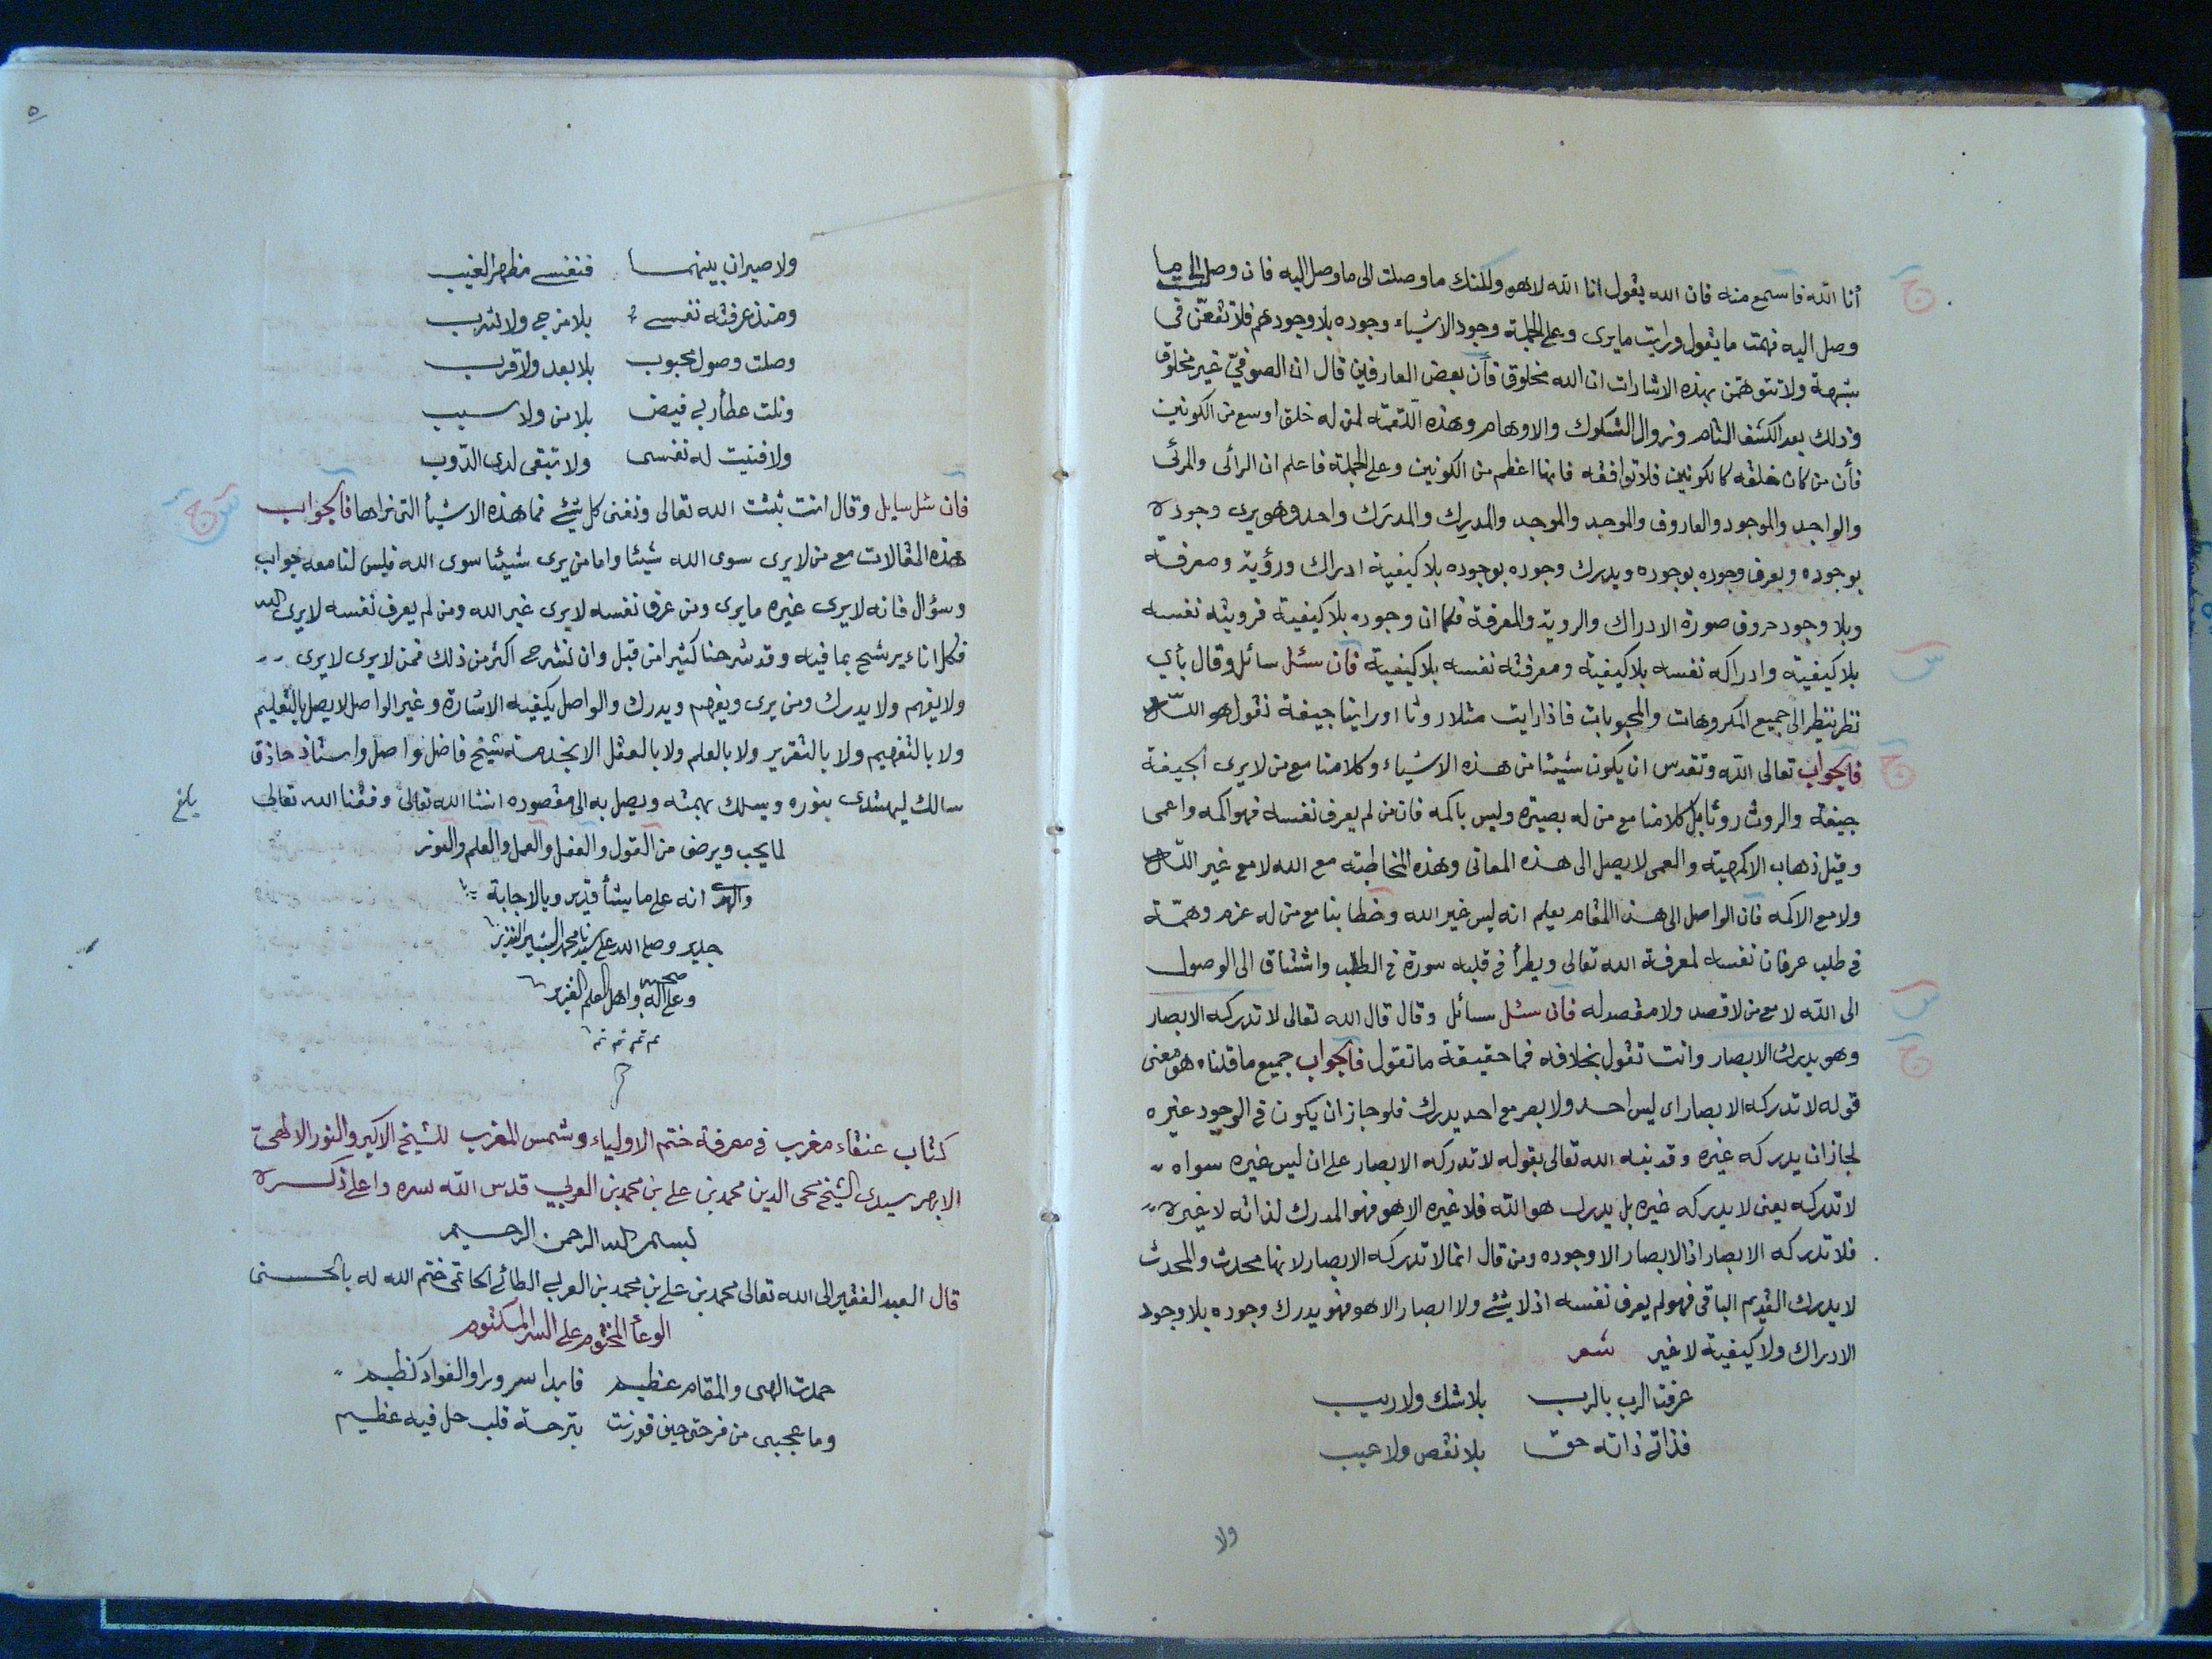 أنا الله فاسمع منه فان الله يقول انا الله لاهو ولكنك ماوصلت الى ماوصل اليه فان وصل الى ما
وصل اليه فهمت ما يقول ورايت مايرى وعلى الجملة وجود الاشياء وجوده بلا وجودهم فلا تقعنّ في
شبهة ولا تتوهمن بهذه الاشارات ان الله مخلوق فأن بعض العارفين قال ان الصوفيّ غير مخلوق
وذلك بعد الكشف التام وزوال الشكوك والاوهام وهذه اللقمة لمن له خلق اوسع من الكونين
فأن من كان خلقه كالكونين فلا توافقه فانها اعظم من الكونين وعلى الجملة فاعلم ان الرائى والمرئى
والواجد والموجود والعارف والموجد والموجد والمدرِك والمدرَك واحد وهو يرى وجوده
بوجوده ويعرف وجوده بوجوده ويدرك وجوده بوجوده بلا كيفية ادراك ورؤية ومعرفة
وبلا وجود حروف صورة الادراك والروية والمعرفة فكما ان وجوده بلا كيفية فرويته نفسه
بلا كيفية وادراكه نفسه بلا كيفية ومعرفته نفسه بلا كيفية فان سئل سائل وقال بأي
نظر ننظر الى جميع المكروهات والمحبوبات فاذا رايت مثلا روثا او راينا جيفة نقول هو الله
فالجواب تعالى الله وتقدس ان يكون شيئا من هذه الاشياء وكلامنا مع من لايرى الجيفة
جيفة والروث روثا بل كلامنا مع من له بصيرة وليس باكمه فان من لم يعرف نفسه فهو اكمه واعمى
وقبل ذهاب الاكمهية والعمى لايصل الى هذه المعانى وهذه المخاطبة مع الله لا مع غير الله
ولا مع الاكمه فان الواصل الى هذا المقام يعلم انه ليس غير الله وخطابنا مع من له عزم وهمّة
في طلب عرفان نفسه لمعرفة الله تعالى ويطرأ في قلبه سورة في الطلب واشتياق الى الوصول
الى الله لا مع من لا قصد ولا مقصد له فان سئل سائل وقال قال الله تعالى لا تدركه الابصار
وهو يدرك الابصار وانت تقول بخلافه فما حقيقة ما تقول فالجواب جميع ما قلناه هو معنى
قوله لا تدركه الابصار اى ليس احد ولا بصر مع احد يدرك فلو جاز ان يكون في الوجود غيره
لجاز ان يدركه غيره وقد نبه الله تعالى بقوله لا تدركه الابصار على ان ليس غيره سواه
لا تدركه يعنى لا يدركه غيره بل يدرك هو الله فلا غيره الا هو فهو المدرك لذاته لا غيره
فلا تدركه الابصار اذ الابصار الا وجوده ومن قال انما لا تدركه الابصار لانها محدث والمحدث
لا يدرك القديم الباقي فهو لم يعرف نفسه اذ لا شئ ولا ابصار الا هو فهو يدرك وجوده بلا وجود
الادراك ولا كيفية لا غير شعر
عرفت الرب بالرب بلا شك ولا ريب
فذاتى ذاته حق بلا نقص ولا عيب
ولا
ولا صيران بينهما فنفسى مظهر الغيب
ومنذ عرفته نفسى بلا مزج ولا شرب
وصلت وصول محبوب بلا بعد ولا قرب
ونلت عطاربى فيض بلا من ولا سبب
ولا فنيت له نفسى ولا تبقى لدى الذوب
فان سئل سايل وقال انت تثبت الله تعالى وتنفى كل شئ فما هذه الاشيأ التى نراها فالجواب
هذه المقالات مع من لايرى سوى الله شيئا واما من يرى شيئا سوى الله فليس لنا معه جواب
وسؤال فانه لايرى غيره مايرى ومن عرف نفسه لايرى غير الله ومن لم يعرف نفسه لايرى الله
فكل اناء يرشح بما فيه وقد شرحنا كثيرا من قبل وان نشرح اكثر من ذلك فمن لايرى لايرى
ولا يفهم ولا يدرك ومن يرى ويفهم ويدرك والواصل يكفيه الاشارة وغير الواصل لايصل بالتعليم
ولا بالتفهيم ولا بالتقرير ولا بالعلم ولا بالعقل الا بخدمة شيخ فاضل واصل واستاذ حاذق
سالك ليهتدى بنوره ويسلك بهمته ويصل به الى مقصوده انشا الله تعالى وفقنا الله تعالى
لما يحب ويرضى من القول والفعل والعمل والعلم والنور
والهدى انه على ما يشأ قدير وبالاجابة
جدير وصلى الله على سيدنا محمد البشير النذير
وعلى آله وصحبه واهل العلم الغزير
تم تم تم تم
كتاب عنقاء مغرب في معرفة ختم الاولياء وشمس المغرب للشيخ الاكبر والنور الالهى
الابهر سيدى الشيخ محى الدين محمد بن على بن محمد بن العربي قدس الله سره واعلى ذكره
بسم الله الرحمن الرحيم
قال العبد الفقير الى الله تعالى محمد بن على بن محمد بن العربي الطائى الحاتمى ختم الله له بالحسنى
الوعأ المختوم على السر المكتوم
حمدت الهى والمقام عظيم فابدا سرورا والفواد كظيم
وما عجبى من فرحتى حين قورنت بترحة قلب حل فيه عظيم